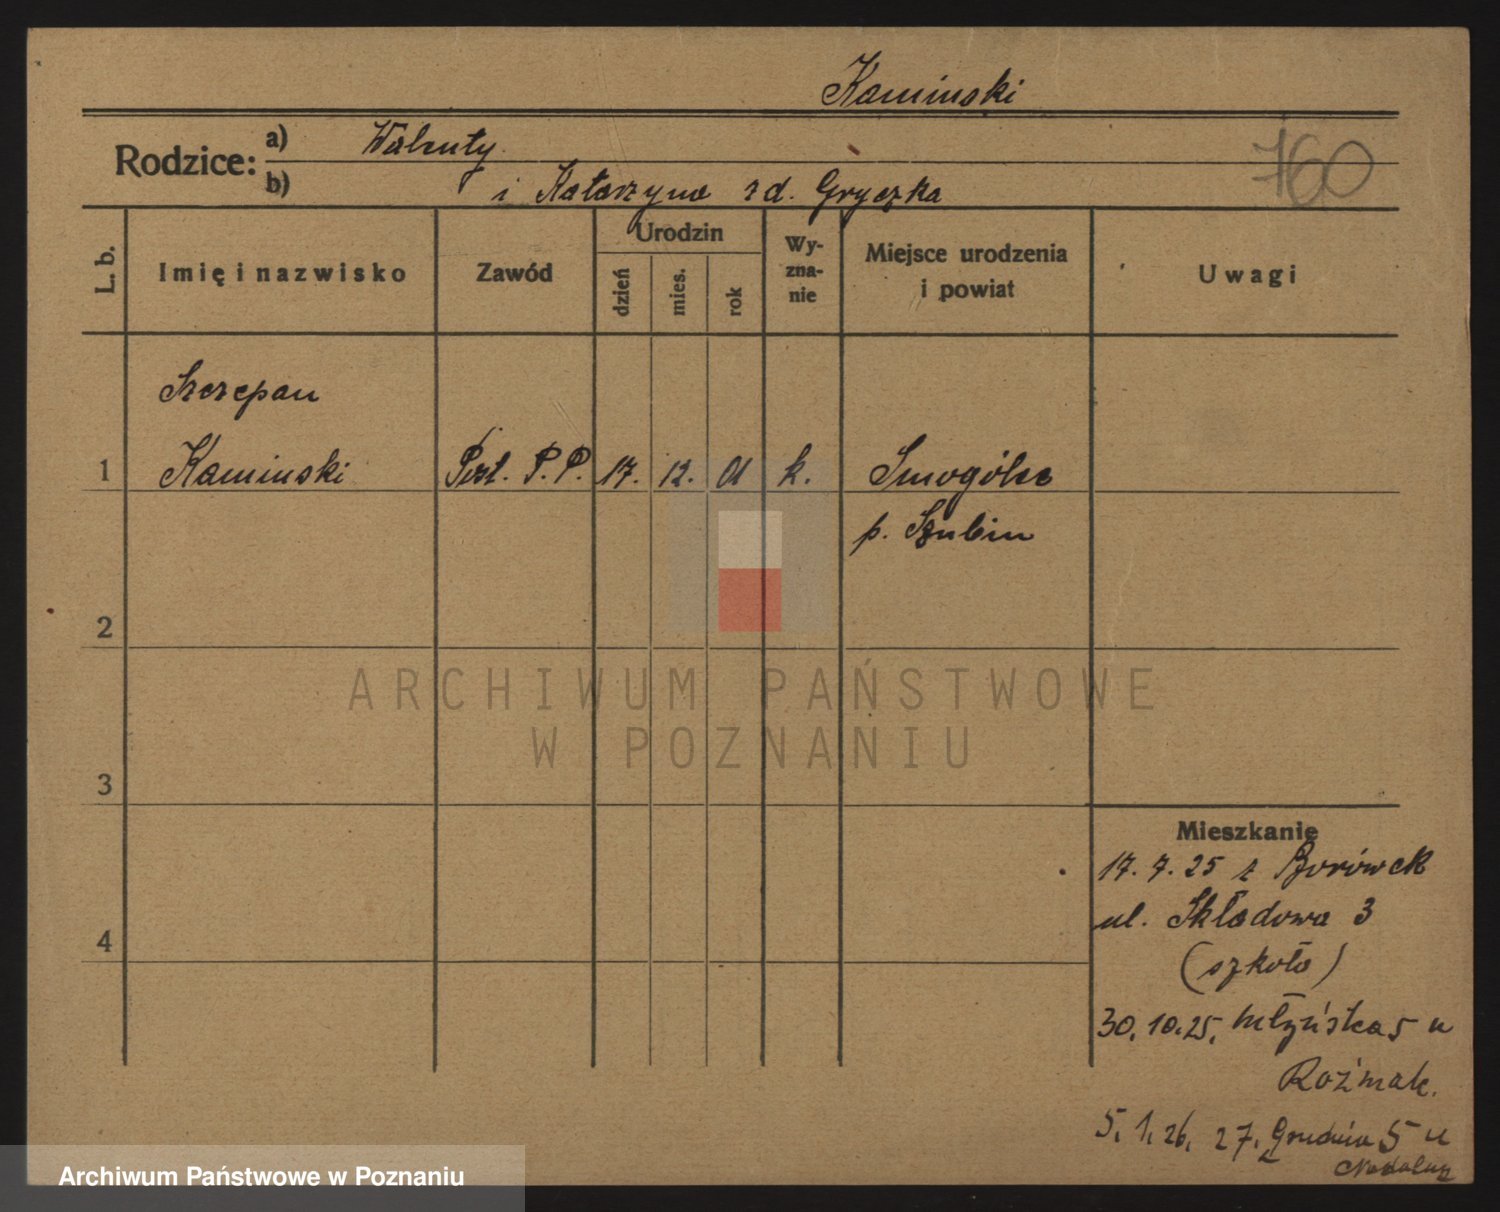 Kaminski
Rodzice: a) Walenty
b) i Katarzyna zd. Gryczka
760
L. b.
Imię i nazwisko
Zawód
Urodzin
dzień
mies.
rok
Wy-
zna-
nie
Miejsce urodzenia
i powiat
Uwagi
Szczepan
1 Kaminski Post. P. P. 17. 12. 01 k. Smogólec
p. Szubin
2
3
4
Mieszkanie
17. 7. 25 z Borówek
ul. Składowa 3
(szkoła)
30. 10. 25. Młyńska 5 u
Roźmak.
5. 1. 26. 27. Grudnia 5 u
ARCHIWUM PAŃSTWOWE
W POZNANIU
Archiwum Państwowe w Poznaniu